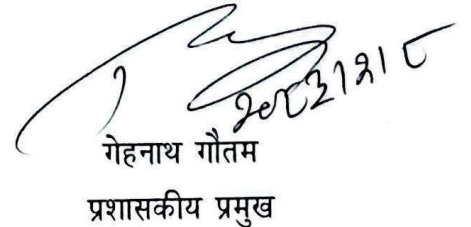 २०८२।२।८
गेहनाथ गौतम
प्रशासकीय प्रमुख